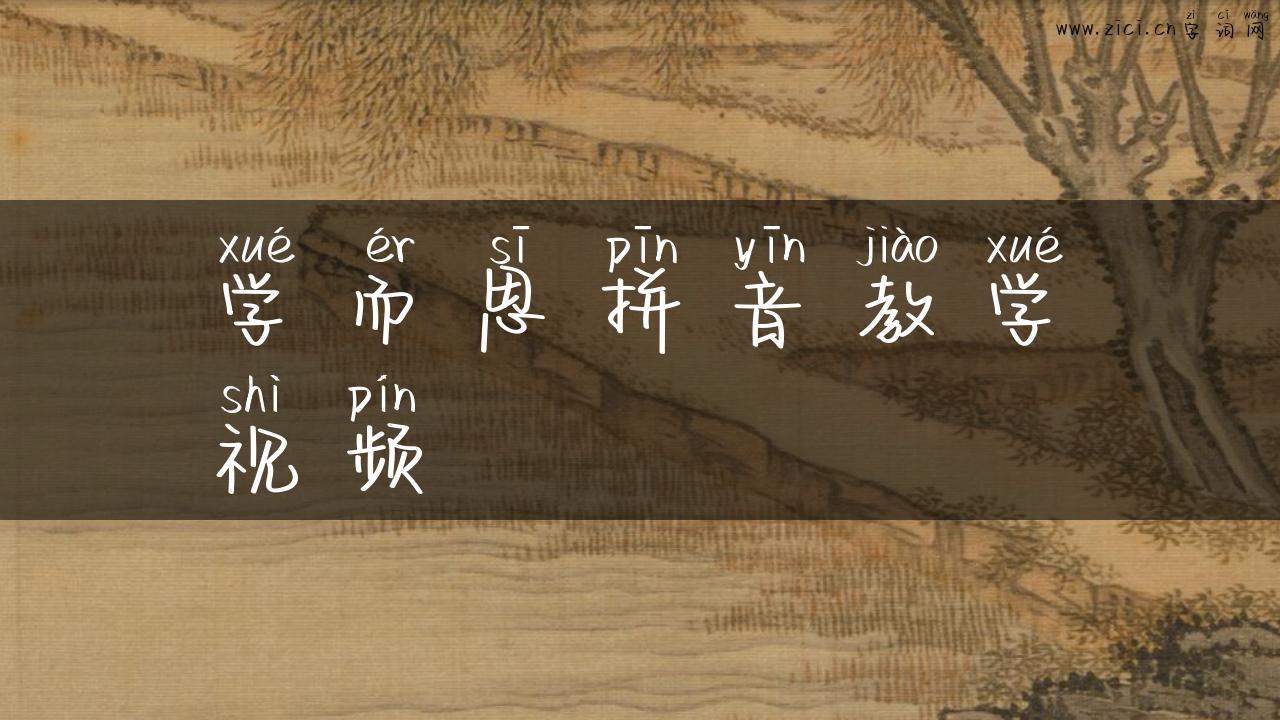 zì cí wǎng
www.zici.cn 字词网
xué ér sī pīn yīn jiào xué
学而思拼音教学
shì pín
视频